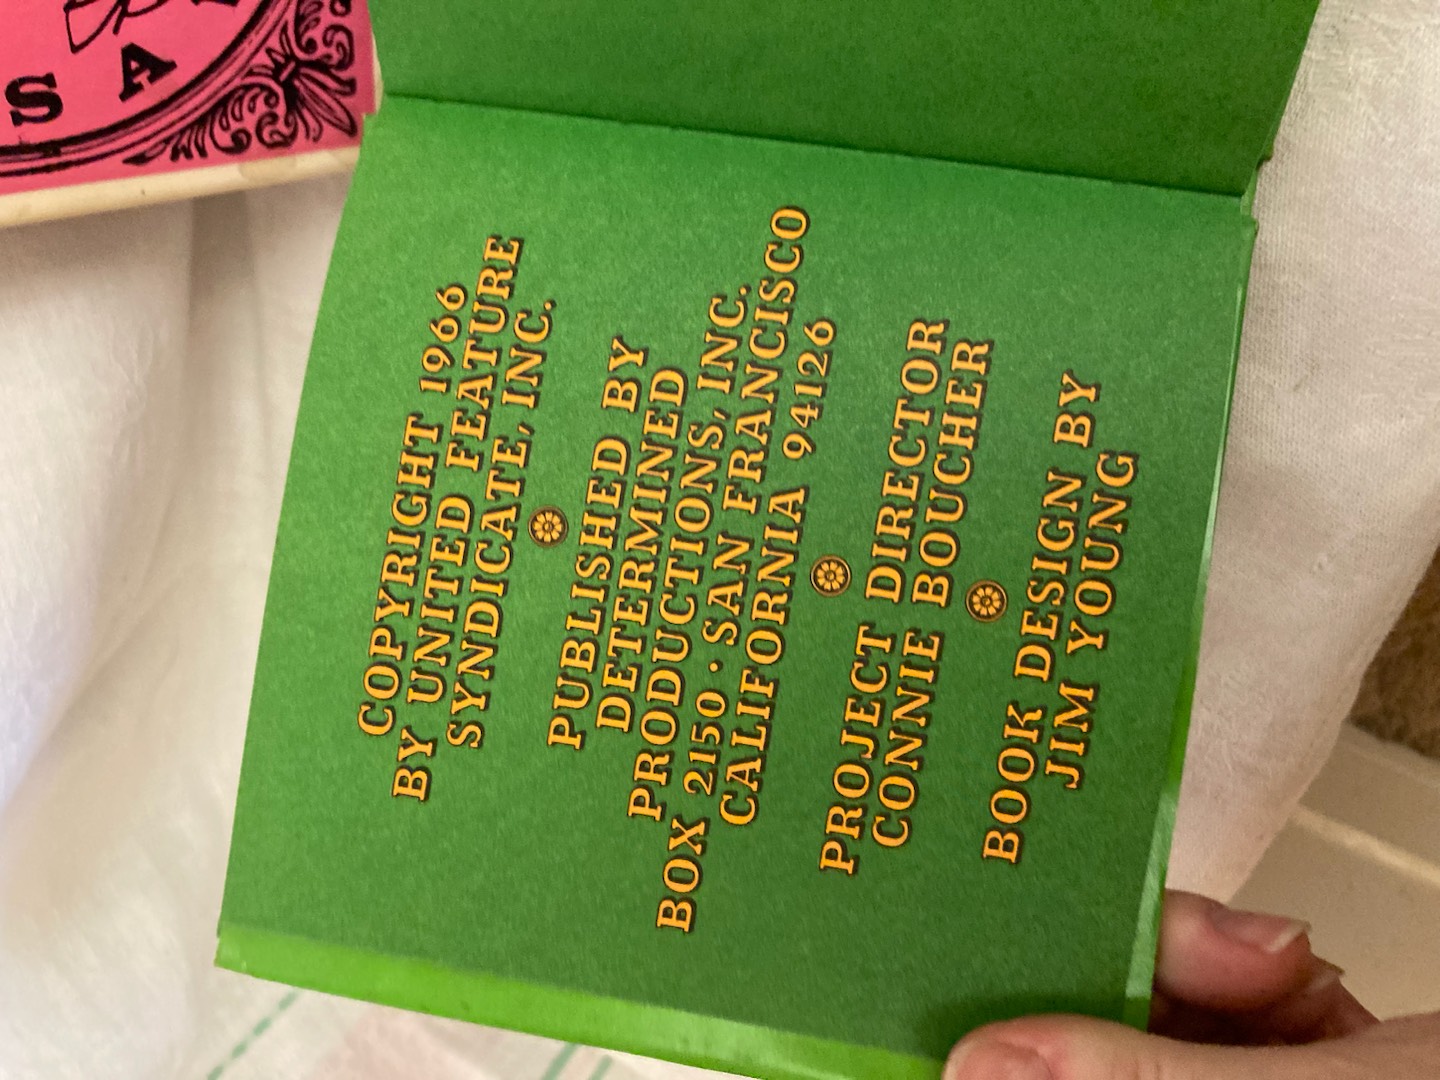 S A
COPYRIGHT 1966
BY UNITED FEATURE
SYNDICATE, INC.
PUBLISHED BY
DETERMINED
PRODUCTIONS, INC.
BOX 2150 · SAN FRANCISCO
CALIFORNIA 94126
PROJECT DIRECTOR
CONNIE BOUCHER
BOOK DESIGN BY
JIM YOUNG